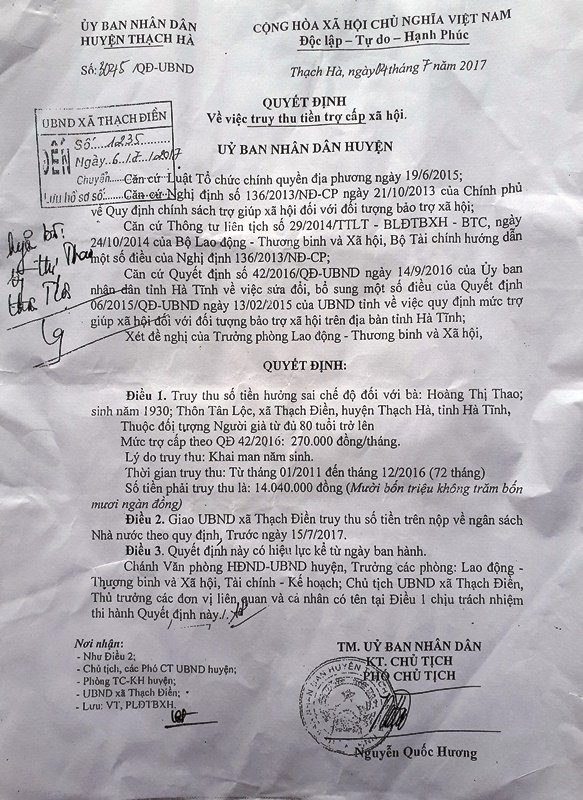 ỦY BAN NHÂN DÂN
HUYỆN THẠCH HÀ
CỘNG HÒA XÃ HỘI CHỦ NGHĨA VIỆT NAM
Độc lập – Tự do – Hạnh Phúc
Số: 3045/QĐ-UBND
Thạch Hà, ngày 04 tháng 7 năm 2017
QUYẾT ĐỊNH
Về việc truy thu tiền trợ cấp xã hội.
UBND XÃ THẠCH ĐIỀN
ĐẾN
Số 1235
Ngày 6.17.1.2017
Chuyển
Lưu hồ sơ số
ỦY BAN NHÂN DÂN HUYỆN
Căn cứ Luật Tổ chức chính quyền địa phương ngày 19/6/2015;
Căn cứ Nghị định số 136/2013/NĐ-CP ngày 21/10/2013 của Chính phủ
về Quy định chính sách trợ giúp xã hội đối với đối tượng bảo trợ xã hội;
Căn cứ Thông tư liên tịch số 29/2014/TTLT - BLĐTBXH - BTC, ngày
24/10/2014 của Bộ Lao động - Thương binh và Xã hội, Bộ Tài chính hướng dẫn
một số điều của Nghị định 136/2013/NĐ-CP;
Căn cứ Quyết định số 42/2016/QĐ-UBND ngày 14/9/2016 của Ủy ban
nhân dân tỉnh Hà Tĩnh về việc sửa đổi, bổ sung một số điều của Quyết định
06/2015/QĐ-UBND ngày 13/02/2015 của UBND tỉnh về việc quy định mức trợ
giúp xã hội đối với đối tượng bảo trợ xã hội trên địa bàn tỉnh Hà Tĩnh;
Xét đề nghị của Trưởng phòng Lao động - Thương binh và Xã hội,
QUYẾT ĐỊNH:
Điều 1. Truy thu số tiền hưởng sai chế độ đối với bà: Hoàng Thị Thao;
sinh năm 1930; Thôn Tân Lộc, xã Thạch Điền, huyện Thạch Hà, tỉnh Hà Tĩnh,
Thuộc đối tượng Người già từ đủ 80 tuổi trở lên
Mức trợ cấp theo QĐ 42/2016: 270.000 đồng/tháng.
Lý do truy thu: Khai man năm sinh.
Thời gian truy thu: Từ tháng 01/2011 đến tháng 12/2016 (72 tháng)
Số tiền phải truy thu là: 14.040.000 đồng (Mười bốn triệu không trăm bốn
mươi ngàn đồng)
Điều 2. Giao UBND xã Thạch Điền truy thu số tiền trên nộp về ngân sách
Nhà nước theo quy định, Trước ngày 15/7/2017.
Điều 3. Quyết định này có hiệu lực kể từ ngày ban hành.
Chánh Văn phòng HĐND-UBND huyện, Trưởng các phòng: Lao động -
Thương binh và Xã hội, Tài chính - Kế hoạch; Chủ tịch UBND xã Thạch Điền,
Thủ trưởng các đơn vị liên quan và cá nhân có tên tại Điều 1 chịu trách nhiệm
thi hành Quyết định này./.
Nơi nhận:
- Như Điều 2;
- Chủ tịch, các Phó CT UBND huyện;
- Phòng TC-KH huyện;
- UBND xã Thạch Điền;
- Lưu: VT, PLĐTBXH.
TM. UỶ BAN NHÂN DÂN
KT. CHỦ TỊCH
PHÓ CHỦ TỊCH
Nguyễn Quốc Hương